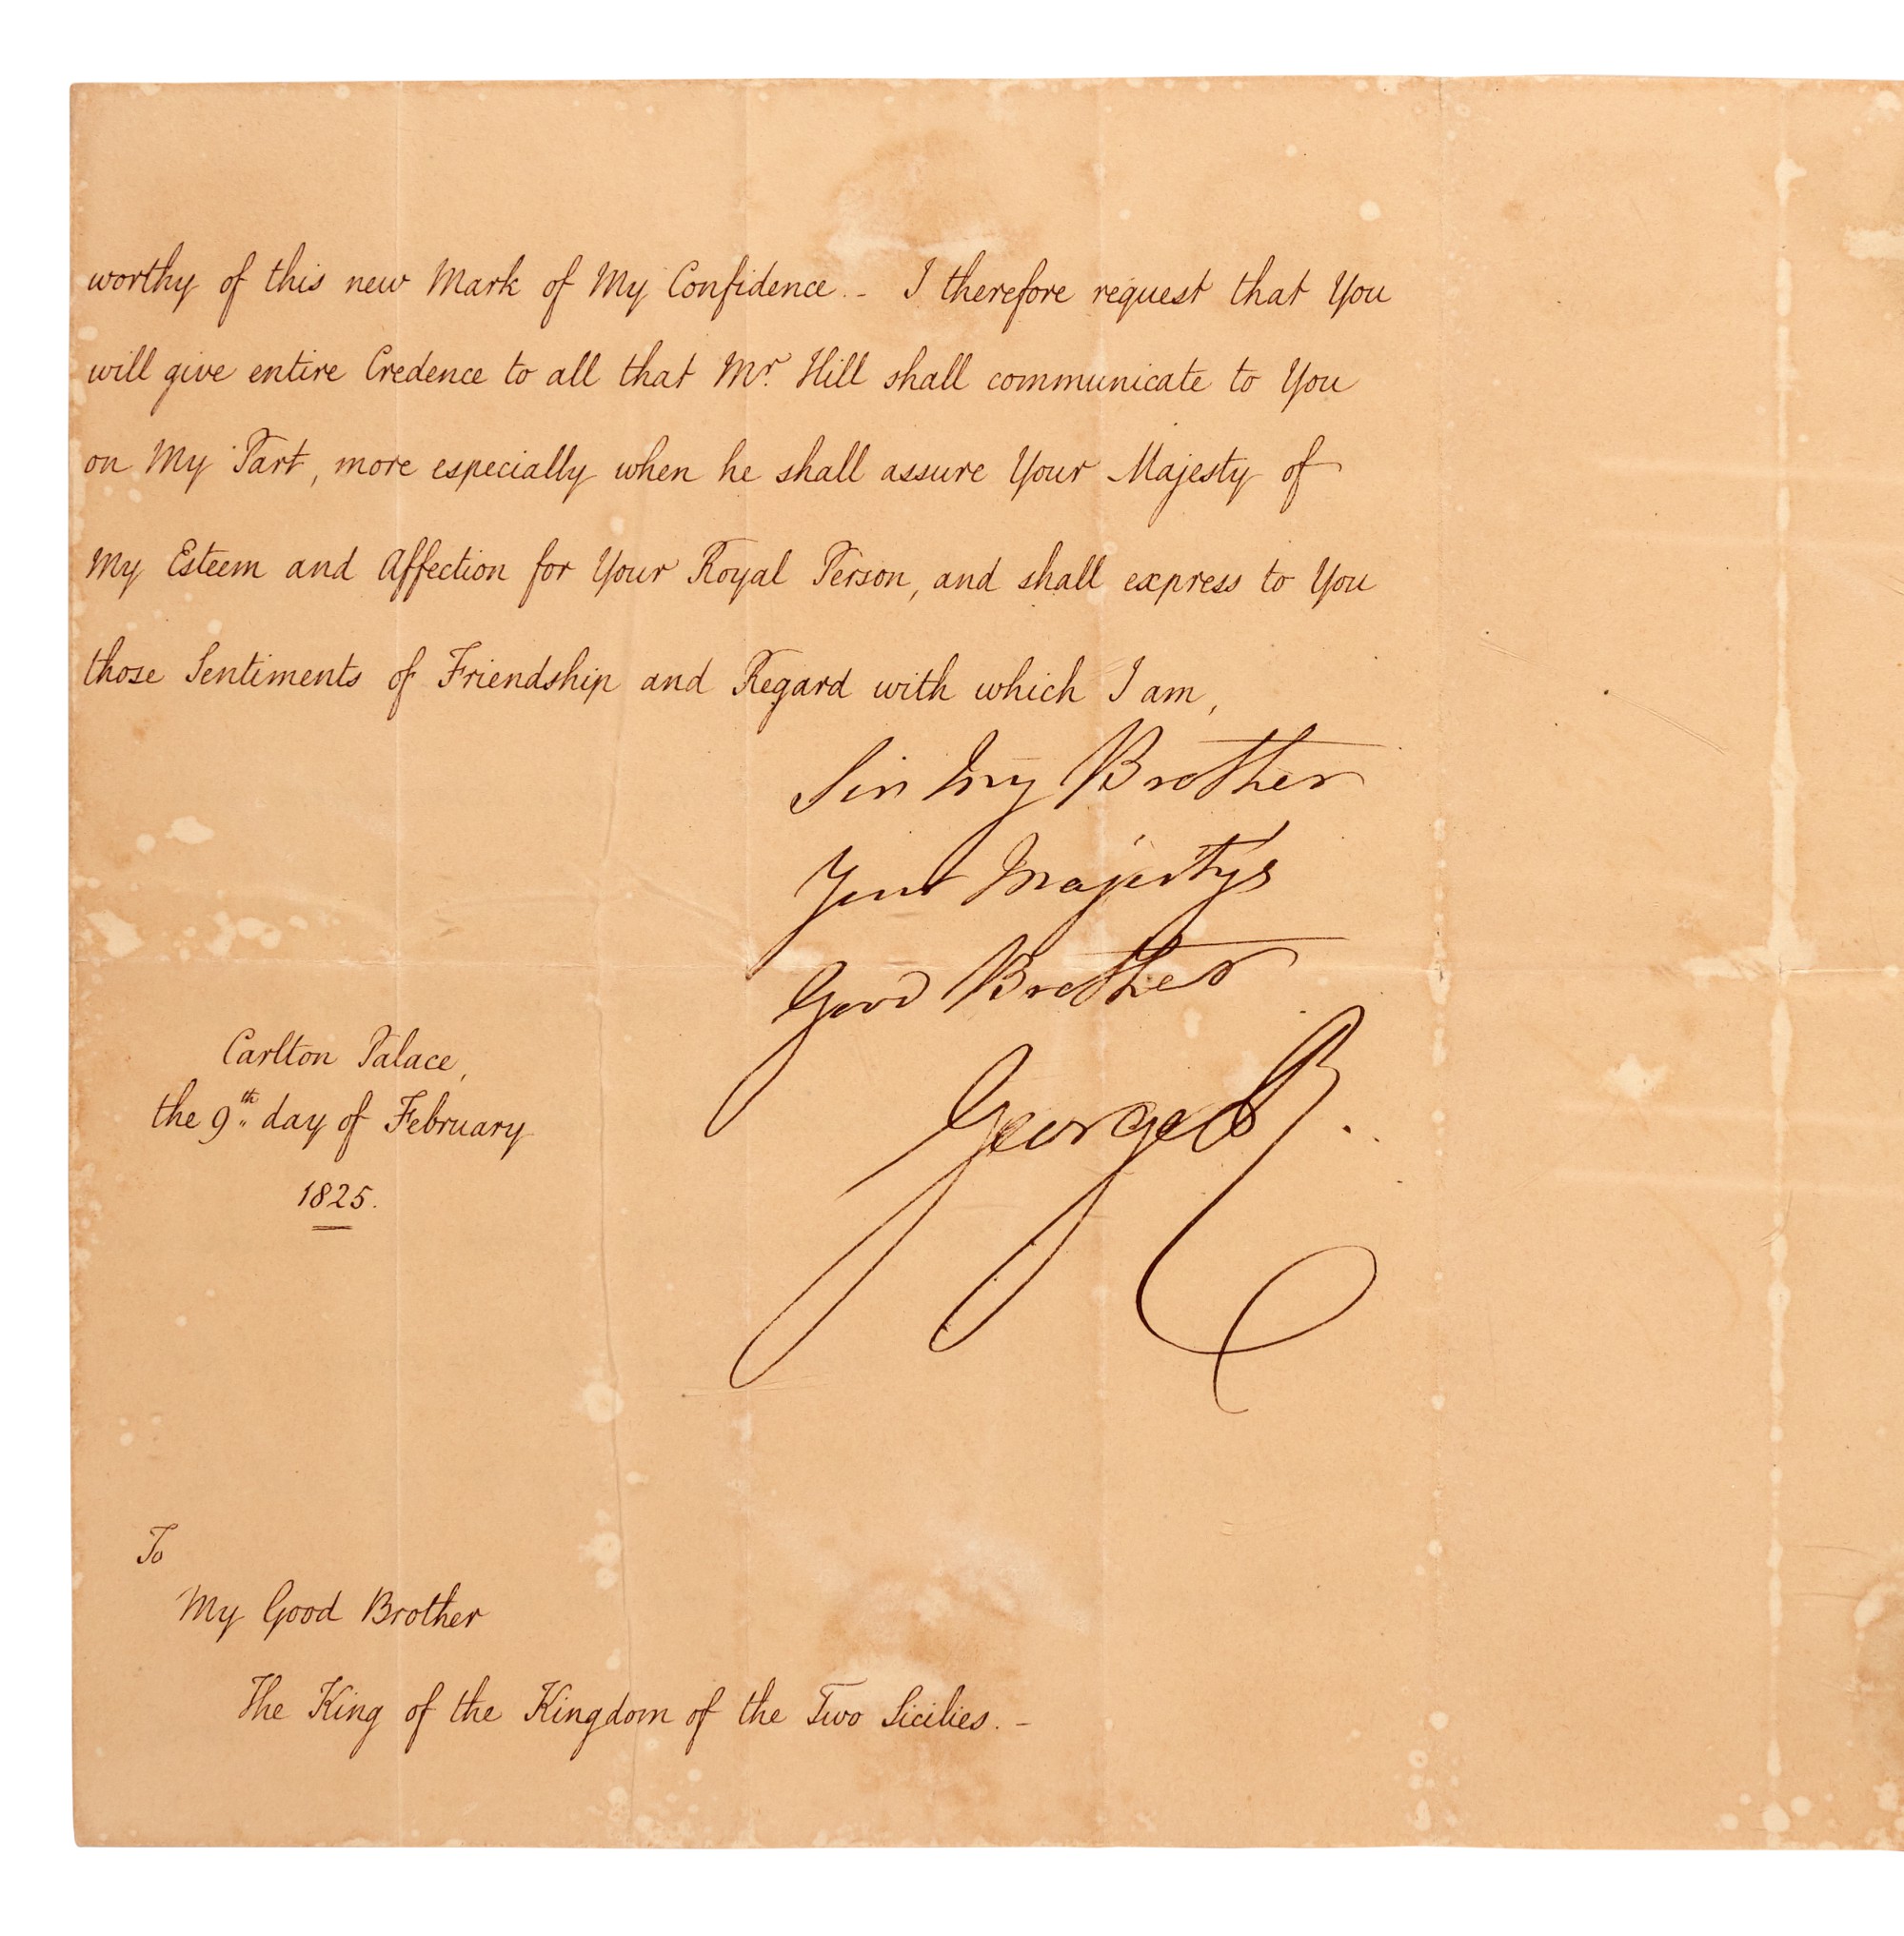 worthy of this new Mark of My Confidence. - I therefore request that You
will give entire Credence to all that Mr. Hill shall communicate to You
on My Part, more especially when he shall assure Your Majesty of
My Esteem and Affection for Your Royal Person, and shall express to You
those Sentiments of Friendship and Regard with which I am,
Sir My Brother
Your Majestys
Good Brother
George R.
Carlton Palace,
the 9th day of February
1825.
To
My Good Brother
The King of the Kingdom of the Two Sicilies. -